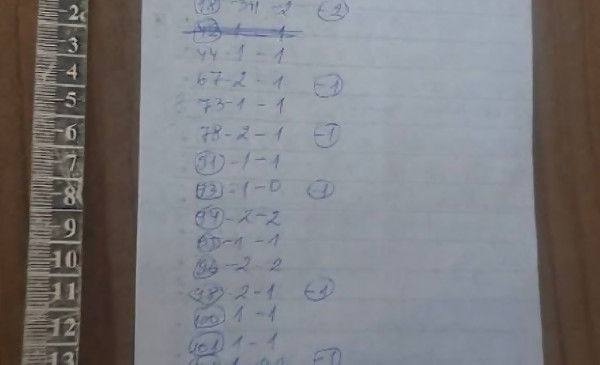 44-1-1
67-2-1 -1
73-1-1
78-2-1 -1
91-1-1
93-1-0 -1
94-2-2
95-1-1
96-2-2
98-2-1 -1
100 1-1
101 1-1
2
3
4
5
6
7
8
9
10
11
12
13